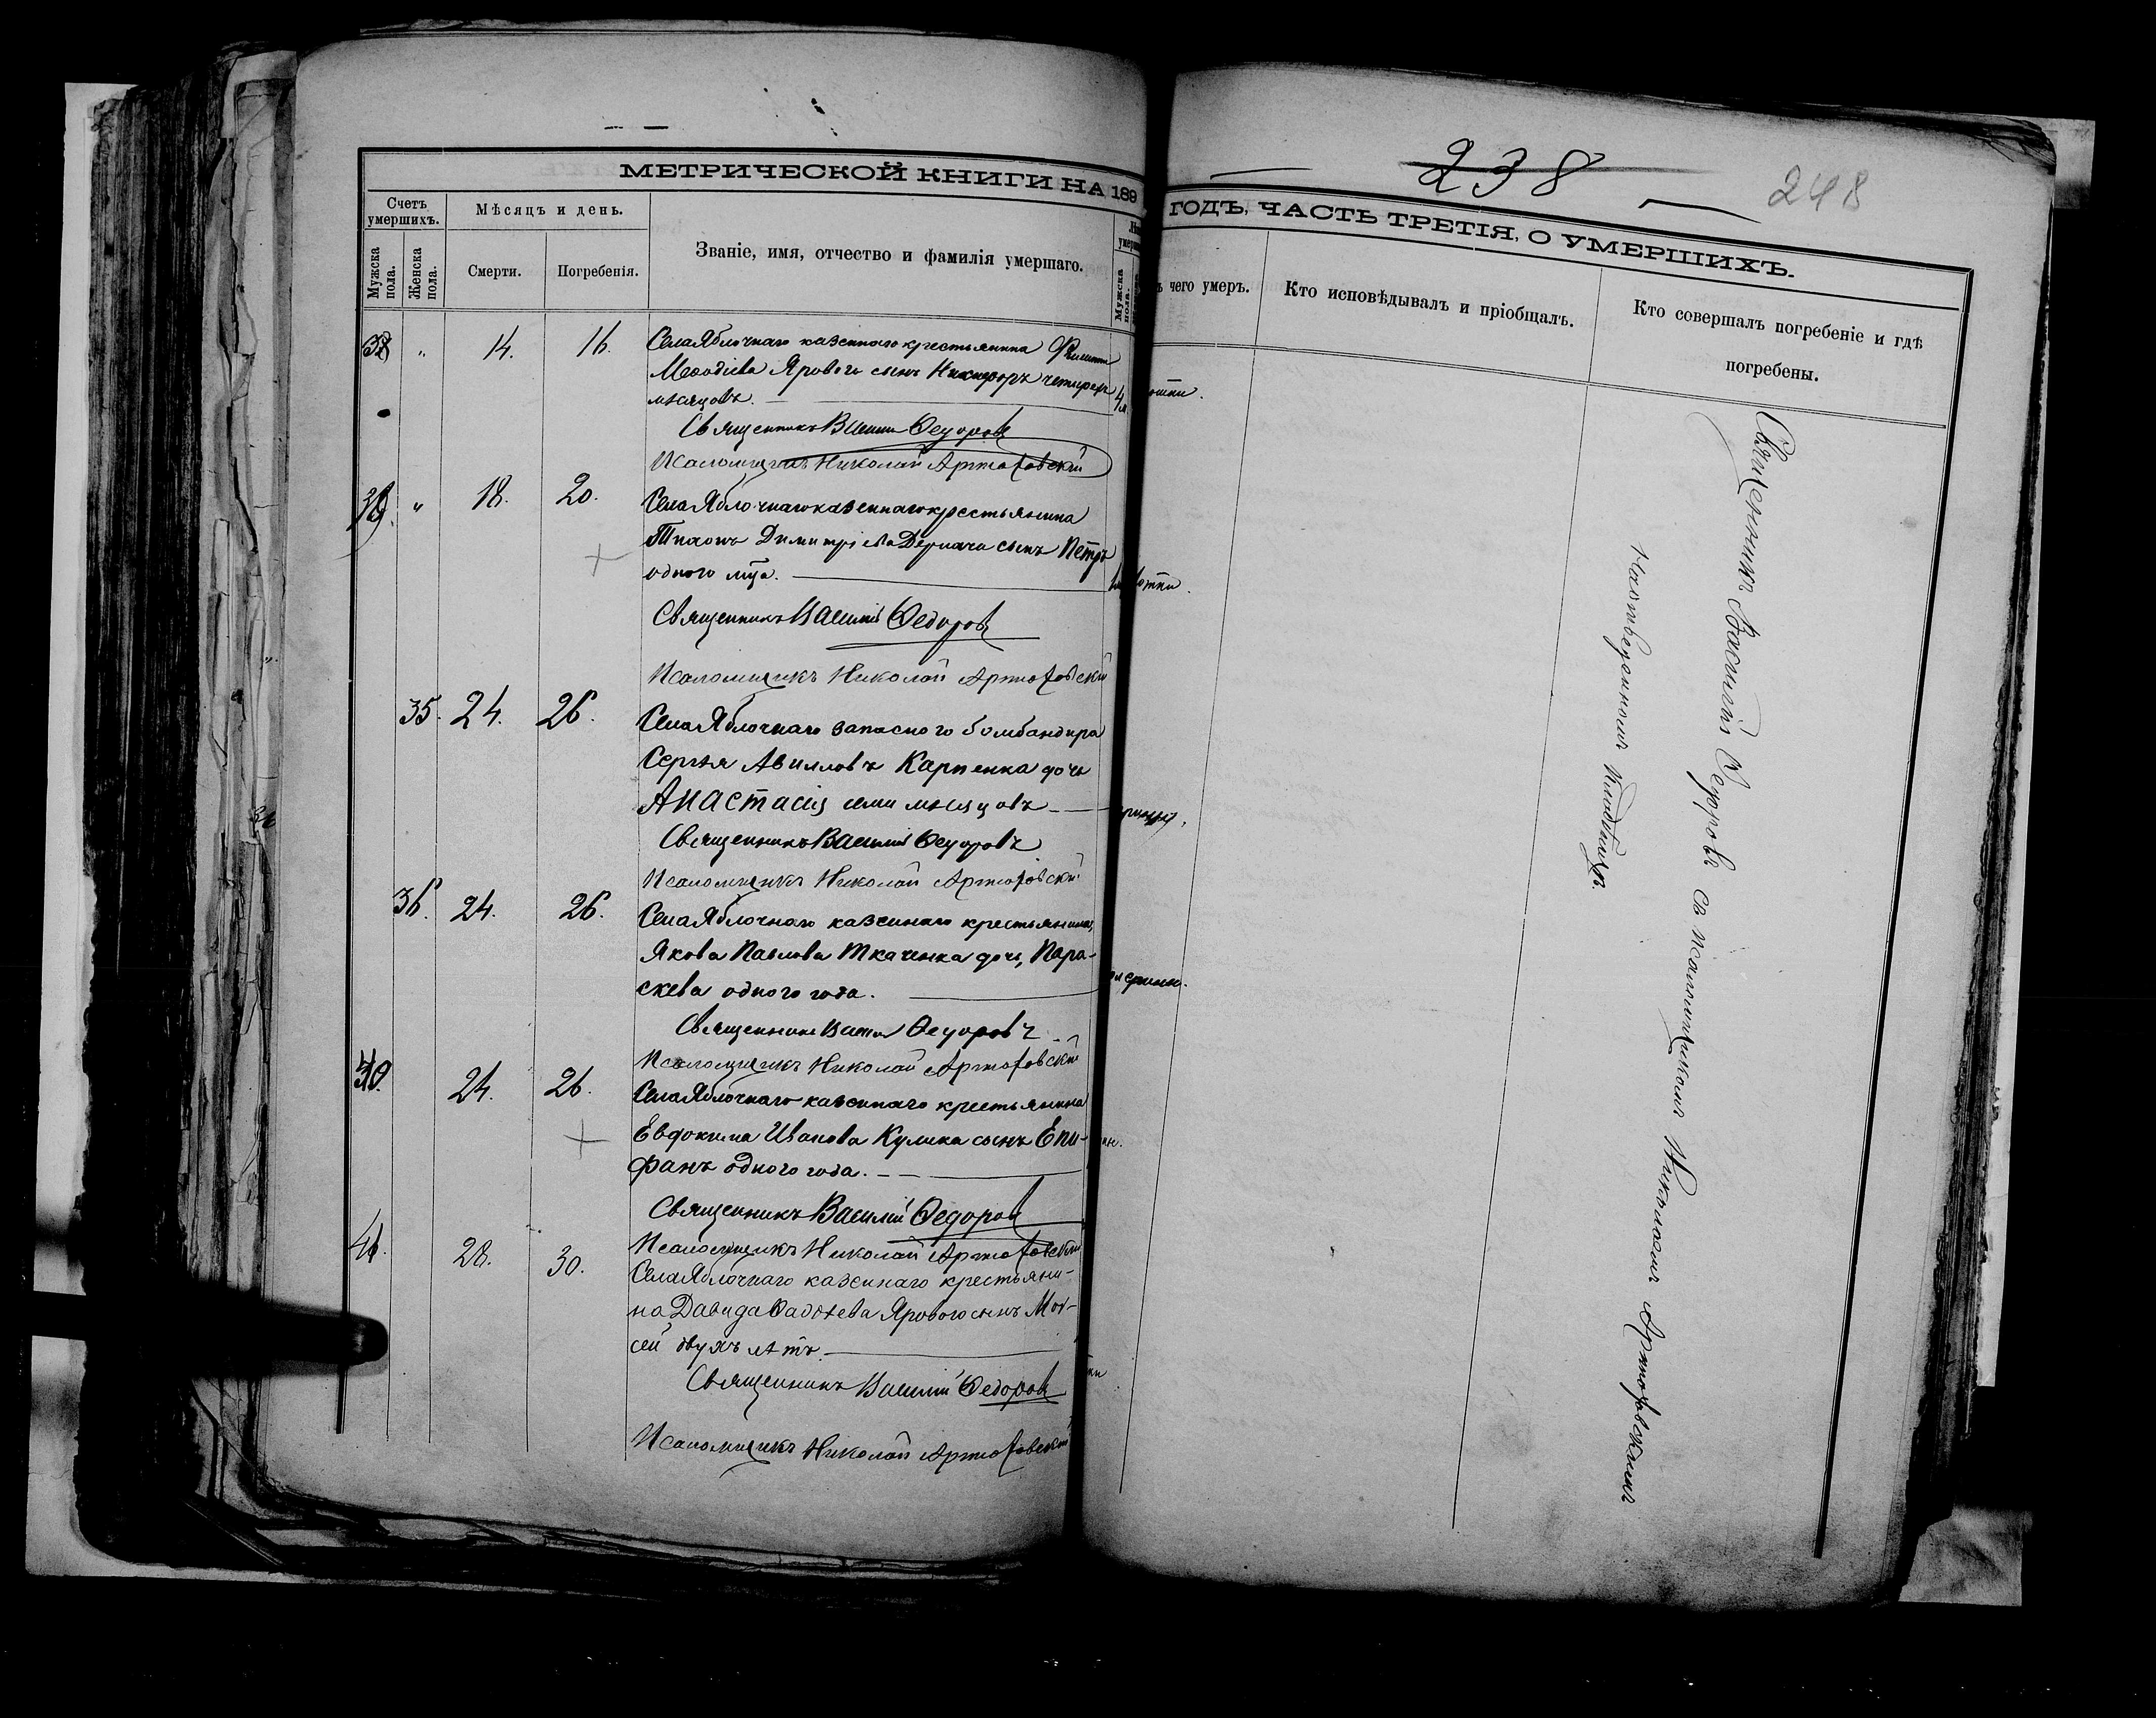 238
248
МЕТРИЧЕСКОЙ КНИГИ НА 189
ГОДЪ, ЧАСТЬ ТРЕТІЯ, О УМЕРШИХЪ.
Счетъ умершихъ.
Мѣсяцъ и день.
Званіе, имя, отчество и фамилія умершаго.
Мужска пола.
Женска пола.
Смерти.
Погребенія.
Мужска пола.
чего умеръ.
Кто исповѣдывалъ и пріобщалъ.
Кто совершалъ погребеніе и гдѣ
погребены.
38 " 14. 16. Села Яблочнаго казеннаго крестьянина
Меѳодіева Яроваго сынъ Никифоръ четырехъ
мѣсяцовъ.
Священникъ Василій Ѳедоровъ
Псаломщикъ Николай Артюховскій
39. " 18. 20. Села Яблочнаго казеннаго крестьянина
Тихона Димитріева Дергача сынъ Петръ
одного мца.
Священникъ Василій Ѳедоровъ
Псаломщикъ Николай Артюховскій
35. 24. 26. Села Яблочнаго запасного бомбандира
Сергѣя Авиловъ Карпенка дочь
Анастасія семи мѣсяцовъ
Священникъ Василій Ѳедоровъ
Псаломщикъ Николай Артюховскій
36. 24. 26. Села Яблочнаго казеннаго крестьянина
Якова Павлова Ткаченка дочь, Пара-
скева одного года.
Священникъ Василій Ѳедоровъ
Псаломщикъ Николай Артюховскій
40. 24. 26. Села Яблочнаго казеннаго крестьянина
Евдокима Иванова Кулика сынъ Епи-
фанъ одного года.
Священникъ Василій Ѳедоровъ
Псаломщикъ Николай Артюховскій
41. 28. 30. Села Яблочнаго казеннаго крестьяни-
на Давида Ѳадѣева Яроваго сынъ Мои-
сей двухъ лѣтъ.
Священникъ Василій Ѳедоровъ
Псаломщикъ Николай Артюховскій
Священникъ Василій Ѳедоровъ съ псаломщикомъ Николаемъ Артюховскимъ
кладбищѣ.